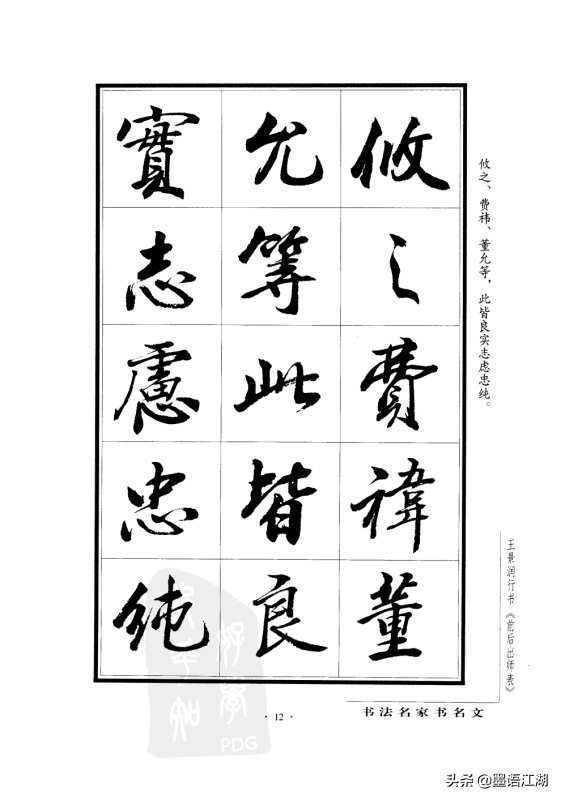 攸之費禕董
允等此皆良
實志慮忠純
攸之、费祎、董允等，此皆良实志虑忠纯。
王景润行书《前后出师表》
书法名家书名文
· 12 ·
PDG
头条 @墨语江湖